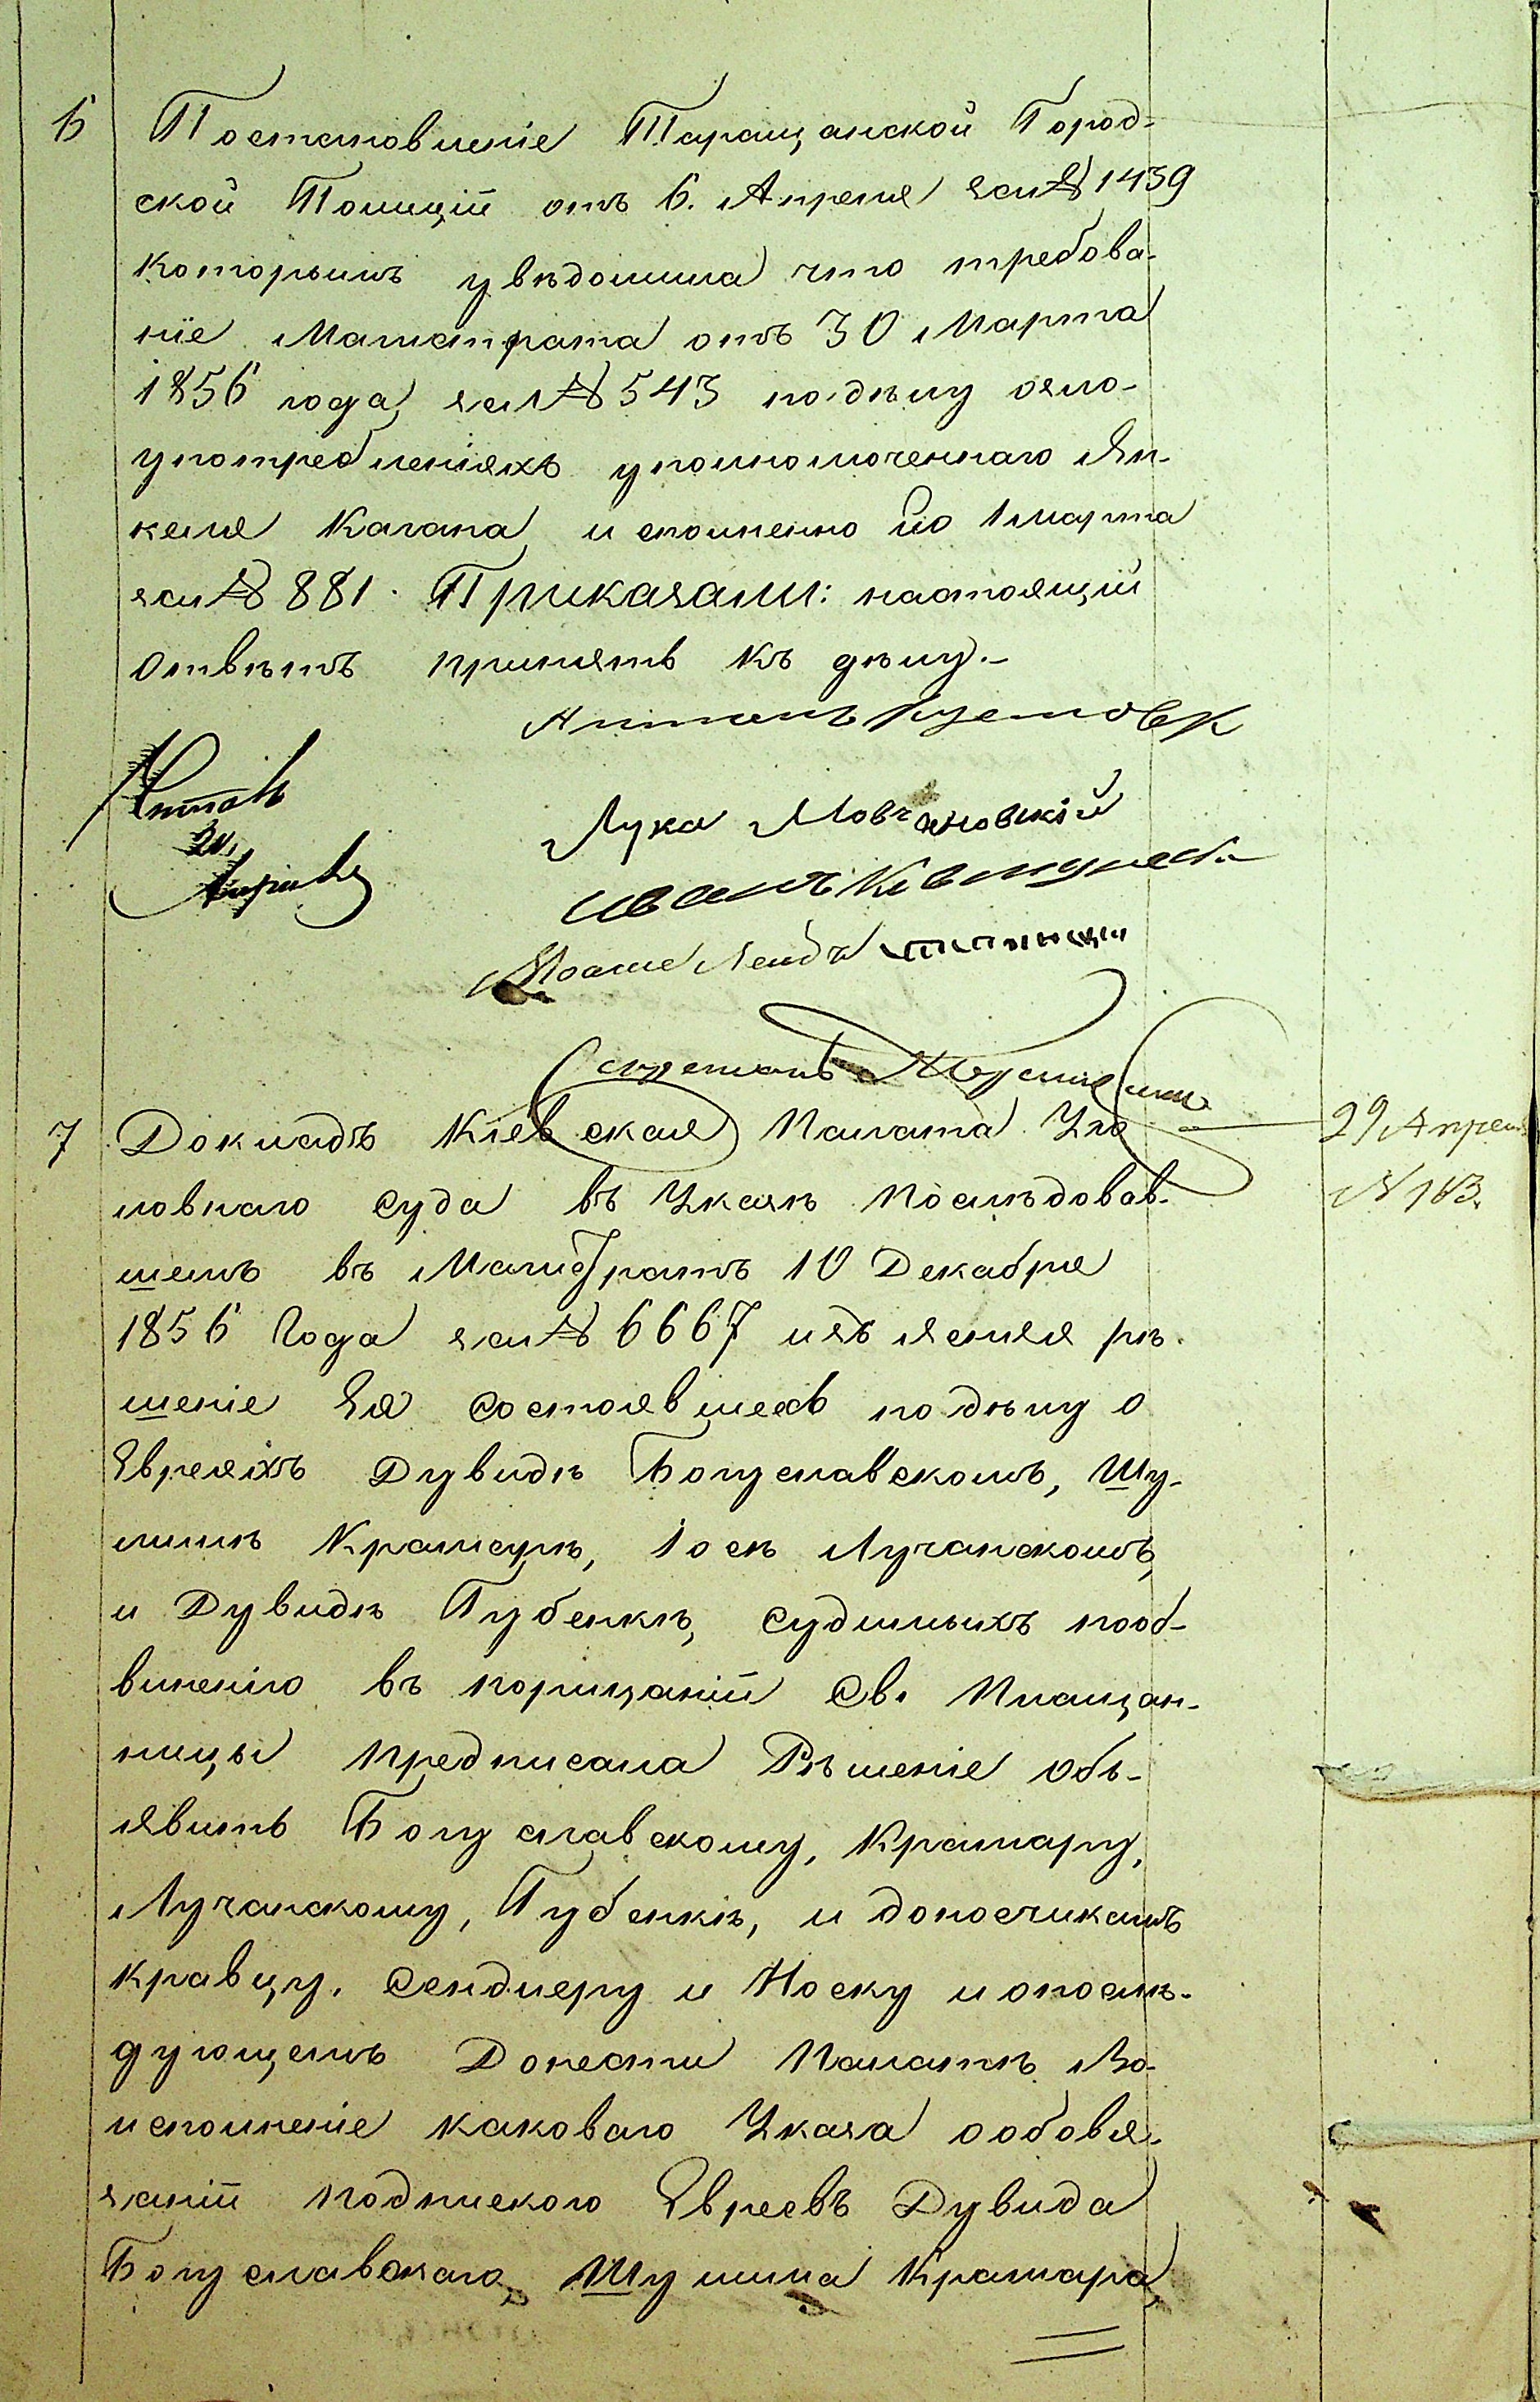 6 Постановленіе Таращанской Город-
ской Полиціи отъ 6. Апреля за № 1439
которымъ увѣдомила что требова-
ніе Магистрата отъ 30 Марта
1856 года за № 543 по дѣлу озло-
употребленіяхъ уполномоченнаго Ян-
келя Кагана исполненно
за № 881. Приказали: настоящій
отвѣтъ принять къ дѣлу.-
Антонъ
Читалъ
Лука Мовчановскій
Иванъ
Мошко Лейба
Секретарь
7 Докладъ Кіевская Палата Уго
ловнаго Суда въ Указѣ последовав-
шемъ въ Магистратъ 10 Декабря
1856 Года за № 6667 изъясняя рѣ-
шеніе Ея состоявшееся по дѣлу о
Евреяхъ Дувидѣ Богуславскомъ, Шу-
лимѣ Крамарѣ, Іосѣ Лучанскомъ,
и Дувидѣ Губенкѣ, судимыхъ пооб-
виненію въ порицаніи Св. Плащан-
ницы предписала Рѣшеніе объ-
явить Богуславскому, Крамару,
Лучанскому, Губенкѣ, и доносчикамъ
Кравцу, Сендлеру и Носку и опослѣ-
дующемъ Донести Палатѣ Во
исполненіе каковаго Указа ообовя-
заніи подпискою Евреевъ Дувида
Богуславскаго, Шулима Крамара,
29 Апреля
№ 183.